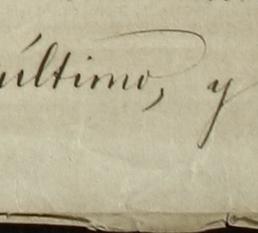 último, y